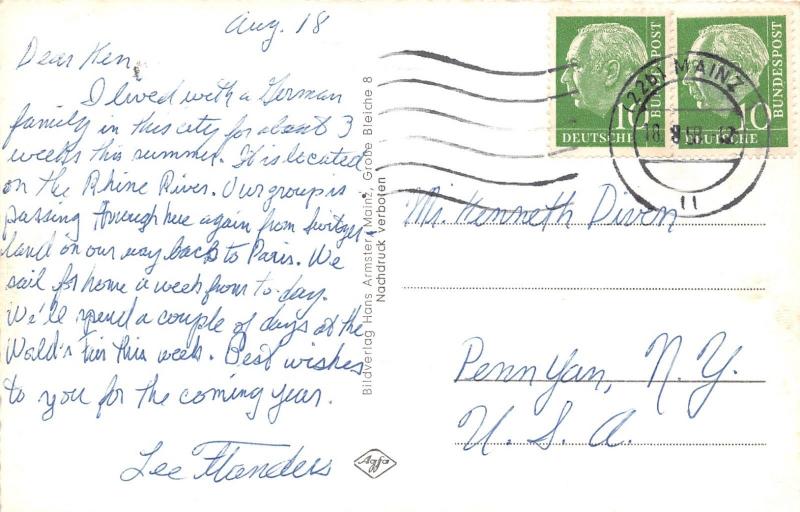 Aug. 18
Dear Ken,
I lived with a German
family in this city for about 3
weeks this summer. It is located
on the Rhine River. Our group is
passing through here again from Switzer-
land on our way back to Paris. We
sail for home a week from to-day.
We'll spend a couple of days at the
World's Fair this week. Best wishes
to you for the coming year.
Lee Flanders
Bildverlag Hans Armster, Mainz, Große Bleiche 8
Nachdruck verboten
Agfa
10
BUNDESPOST
DEUTSCHE
10
BUNDESPOST
DEUTSCHE
(22b) MAINZ
18.8.58
11
Mr. Kenneth Diven
Penn Yan, N. Y.
U. S. A.